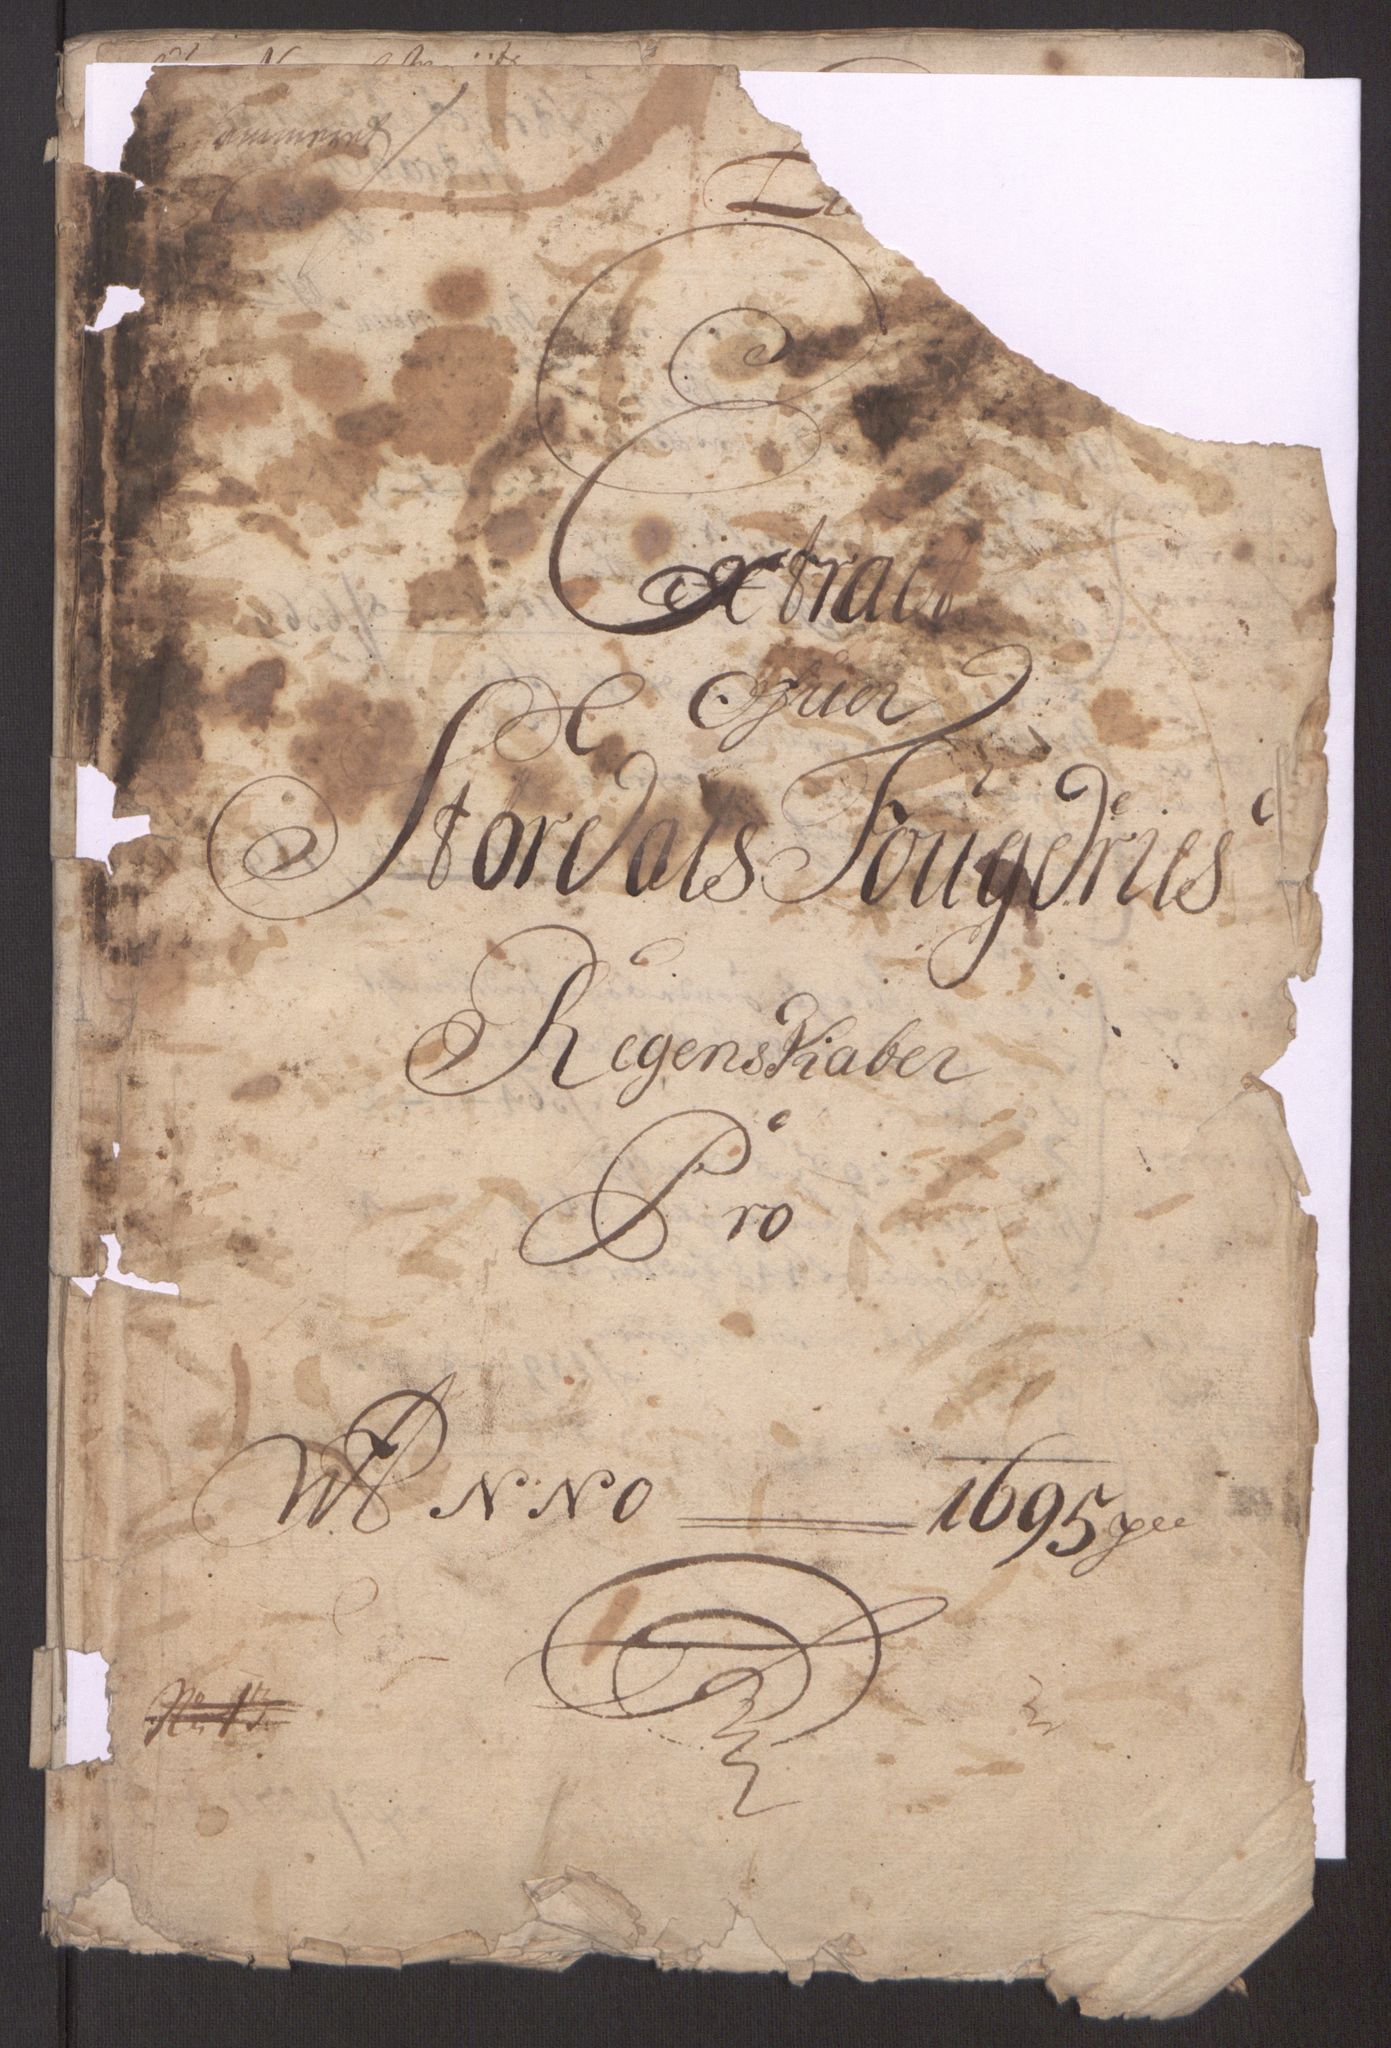 Extract
Ofuer
Stordals Fougdries
Regenskaber
Pro
ANNO 1695
No 13